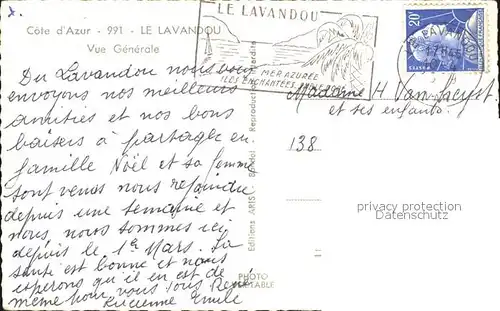 Côte d'Azur - 991 - LE LAVANDOU
Vue Générale
LE LAVANDOU
MER AZURÉE
ILES ENCHANTÉES
20F
LE LAVANDOU
Du Lavandou nous vous
envoyons nos meilleurs
amitiés et nos bons
baisers à partager en
famille Noël et sa femme
sont venus nous rejoindre
depuis une semaine et
nous, nous sommes ici
depuis le 1er Mars. La
santé est bonne et nous
esperons qu'il en est de
même pour vous tous René
Lucienne Emile
Editions ARIS
Reproduction
PHOTO
VERITABLE
Madame H. Van
et ses enfants.
138
privacy protection
Datenschutz